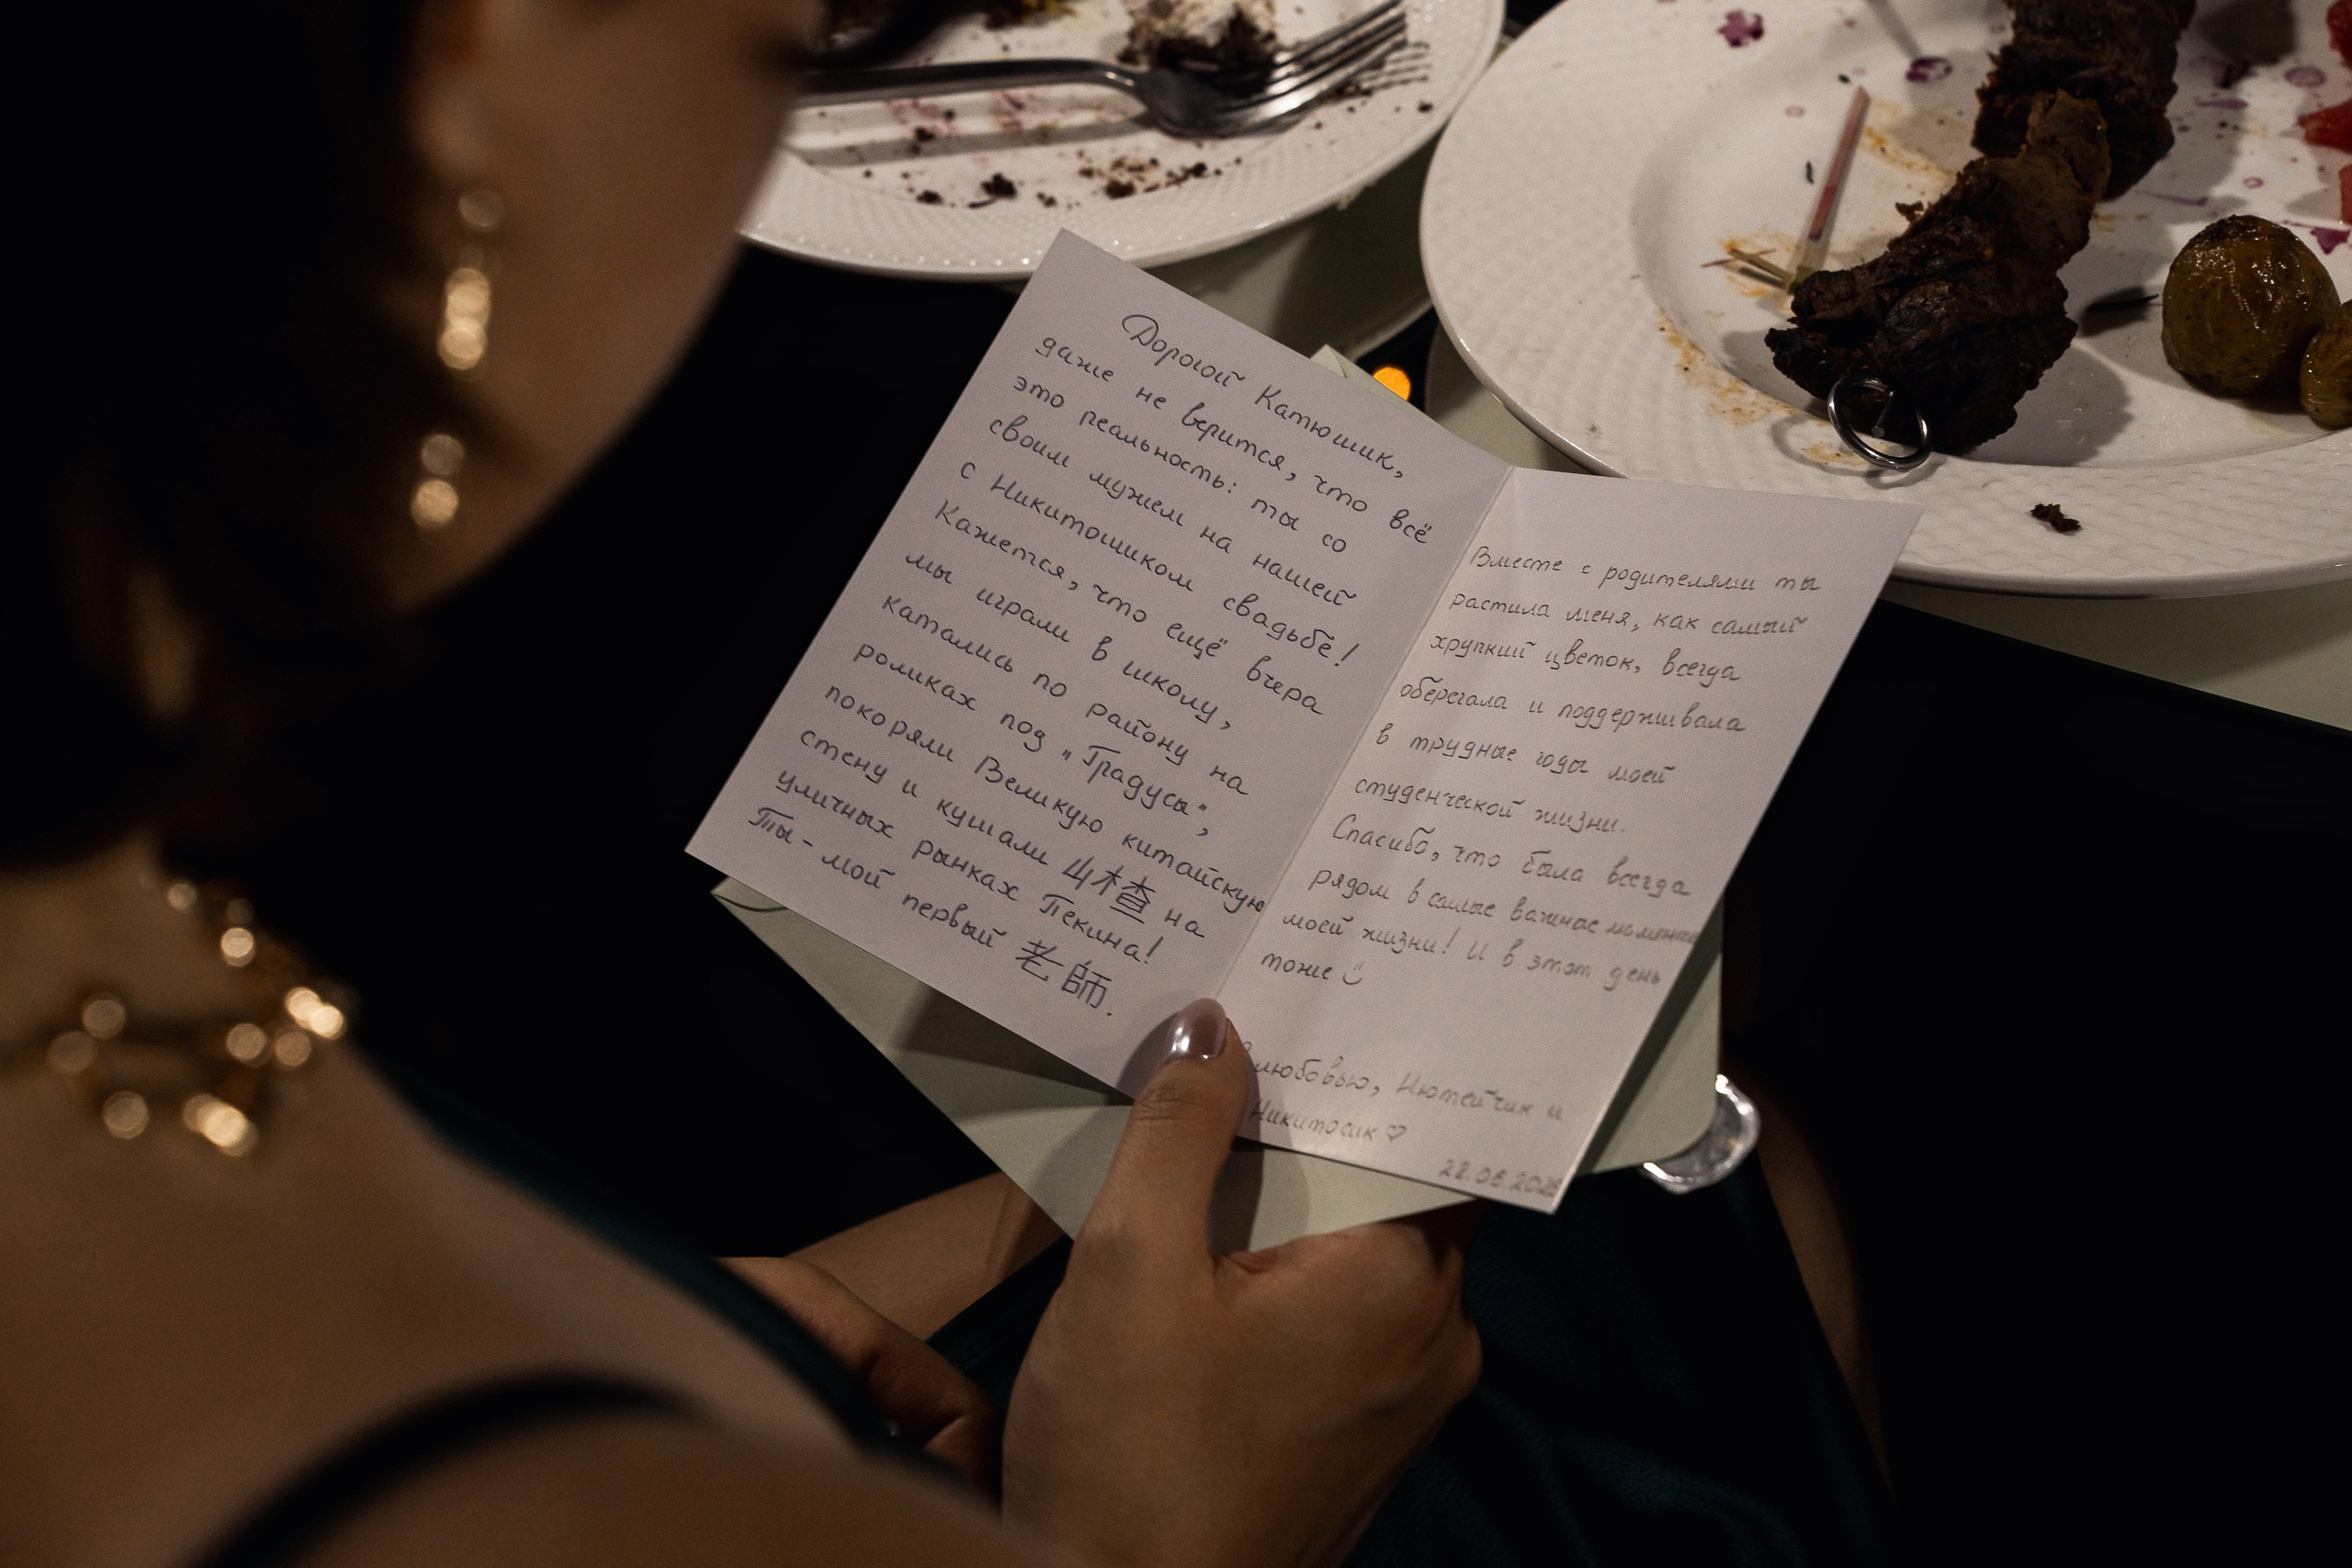 Дорогой Катюшик,
даже не верится, что всё
это реальность: ты со
своим мужем на нашей
с Никитошиком свадьбе!
Кажется, что ещё вчера
мы играли в школу,
катались по району на
роликах под "Градусы",
покоряли Великую китайскую
стену и кушали 山楂 на
уличных рынках Пекина!
Ты - мой первый 老師.
Вместе с родителями ты
растила меня, как самый
хрупкий цветок, всегда
оберегала и поддерживала
в трудные годы моей
студенческой жизни.
Спасибо, что была всегда
рядом в самые важные моменты
моей жизни! И в этот день
тоже
любовью, Нютейчик и
Никитосик ♡
22.06.2025